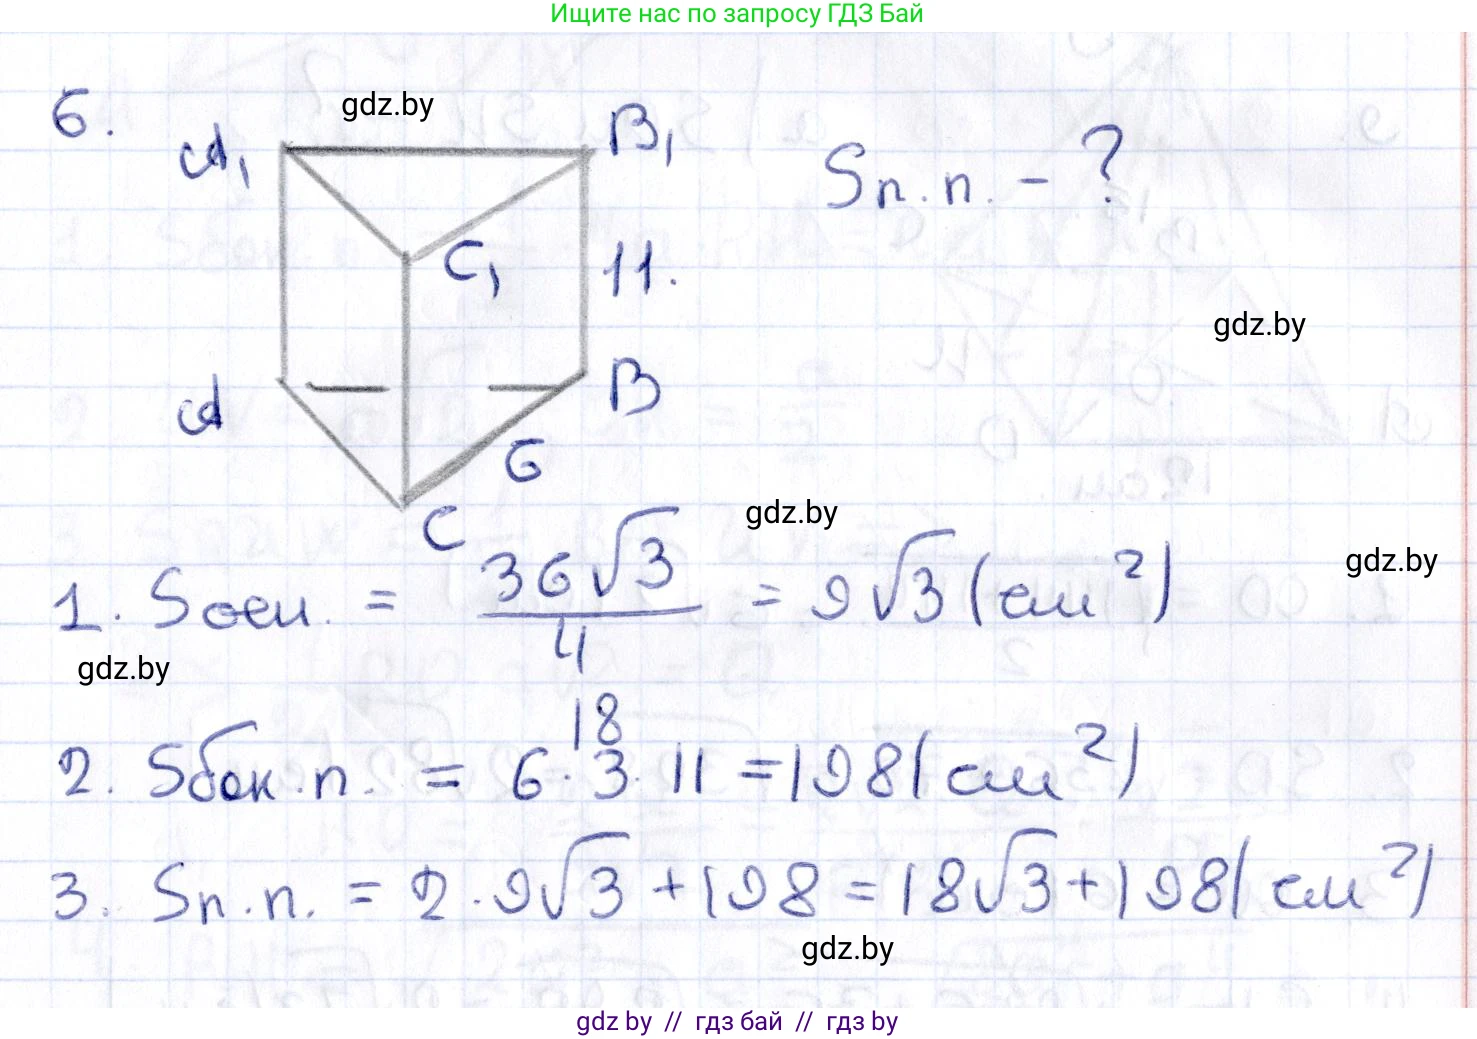 Ищите нас по запросу ГДЗ Бай
6.
gdz.by
A₁
B₁
Sп.п. - ?
C₁
11.
gdz.by
A
B
6
C
gdz.by
gdz.by
1. Sосн. = 36√3/4 = 9√3 (см²)
gdz.by
18
2. Sбок.п. = 6·3·11 = 198 (см²)
3. Sп.п. = 2·9√3 + 198 = 18√3 + 198 (см²)
gdz.by
gdz by // гдз бай // гдз by